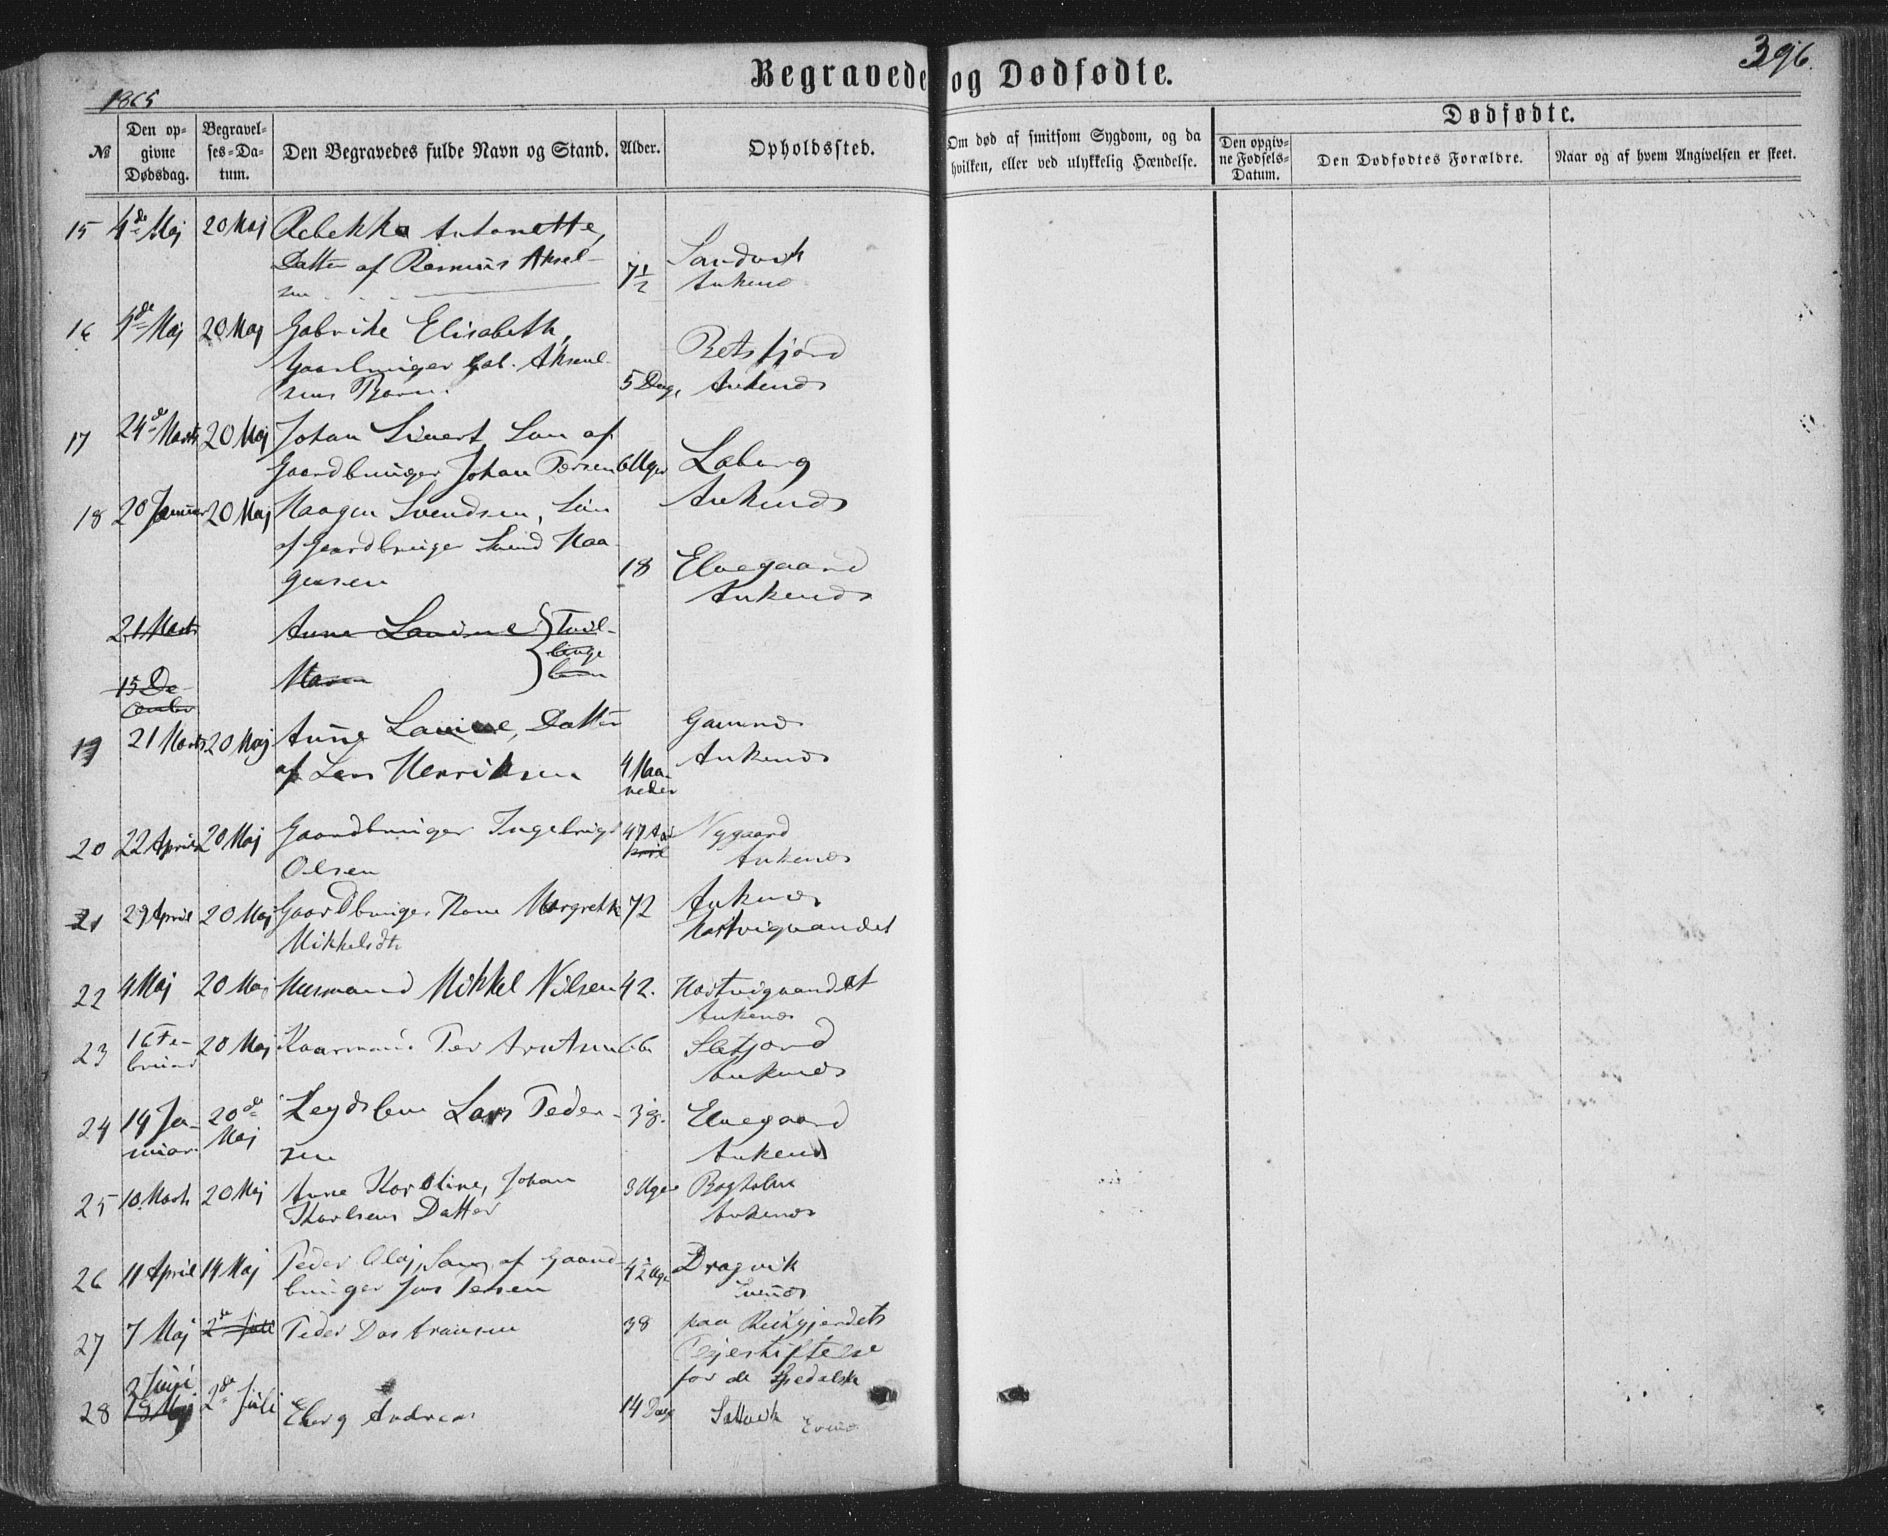 396.
Begravede og Dødfødte.
1865
Dødfødte.
No
Den opgivne Dødsdag.
Begravelses-Datum.
Den Begravedes fulde Navn og Stand.
Alder.
Opholdssted.
Om død af smitsom Sygdom, og da hvilken, eller ved ulykkelig Hændelse.
Den opgivne Fødsels-Datum.
Den Dødfødtes Forældre.
Naar og af hvem Angivelsen er skeet.
15 4de Maj 20 Maj Rebekka Antonette,
Datter af Rasmus Aksel-
sen 7½ Sandvik
Ankenes
16 20 Maj Elisabeth,
Gaardbruger Gab. Aksel-
sens Barn. 5 Dage
Ankenes
17 24de Marts 20 Maj Johan Sivert, Søn af
Gaardbruger Johan Persen 6 Uger Laberg
Ankenes
18 20 Januar 20 Maj Haagen Svendsen, Søn
af Gaardbruger Svend Haa-
gensen 18 Elvegaard
Ankenes
21 Marts Anne Lavine Tvil-
linge
15 De-
cember Maren børn
19 21 Marts 20 Maj Anne Lavine, Datter
af Lars Henriksen 4 Maa-
neder Ankenes
20 22 April 20 Maj Gaardbruger Ingebrigt
Olsen 47 Aar Nygaard
Ankenes
21 29 April 20 Maj Gaardbruger Kone Margrethe
Mikkelsdtr 72 Ankenes
Hartvigvandet
22 4 Maj 20 Maj Husmand Mikkel Nilsen 42. Hartvigvandet
Ankenes
23 16 Fe-
bruar 20 Maj Kaarmand Per Arntsen 66 Sletjord
Ankenes
24 14 Ja-
nuar 20de
Maj Lægdslem Lars Peder-
sen 38. Elvegaard
Ankenes
25 10. Marts 20 Maj Anne Karoline, Johan
Karlsens Datter 3 Uger Bogholm
Ankenes
26 11 April 14 Maj Peder Olaj, Søn af Gaard-
bruger Jens Persen 4½ Uge Dragvik
Evenes
27 7 Maj 2de Juli Peder 38 paa Reitgjerdets
Plejestiftelse
for de Spedalske
28 2 Juni
19 Maj 2de Juli Andreas 14 Dage
Evenes